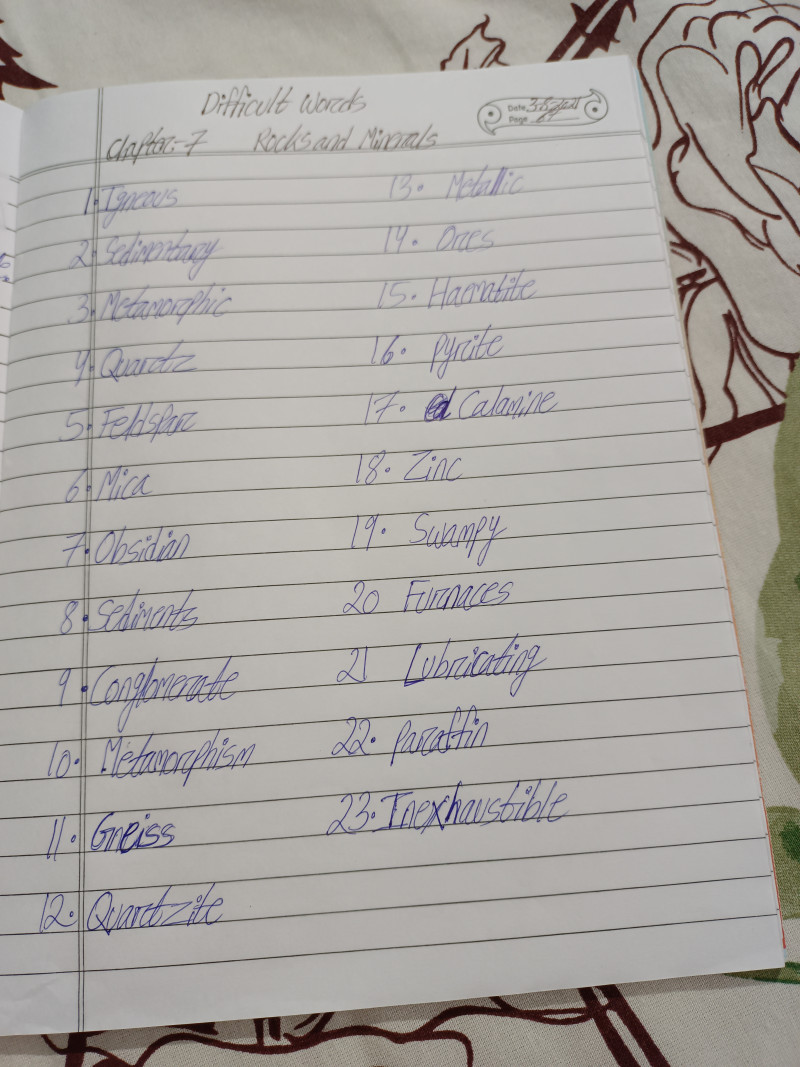 Difficult Words
Date
Page
Chapter:- 7 Rocks and Minerals
1. Igneous
2. Sedimentary
3. Metamorphic
4. Quartz
5. Feldspar
6. Mica
7. Obsidian
8. Sediments
9. Conglomerate
10. Metamorphism
11. Gneiss
12. Quartzite
13. Metallic
14. Ores
15. Haematite
16. Pyrite
17. Calamine
18. Zinc
19. Swampy
20 Furnaces
21 Lubricating
22. Paraffin
23. Inexhaustible